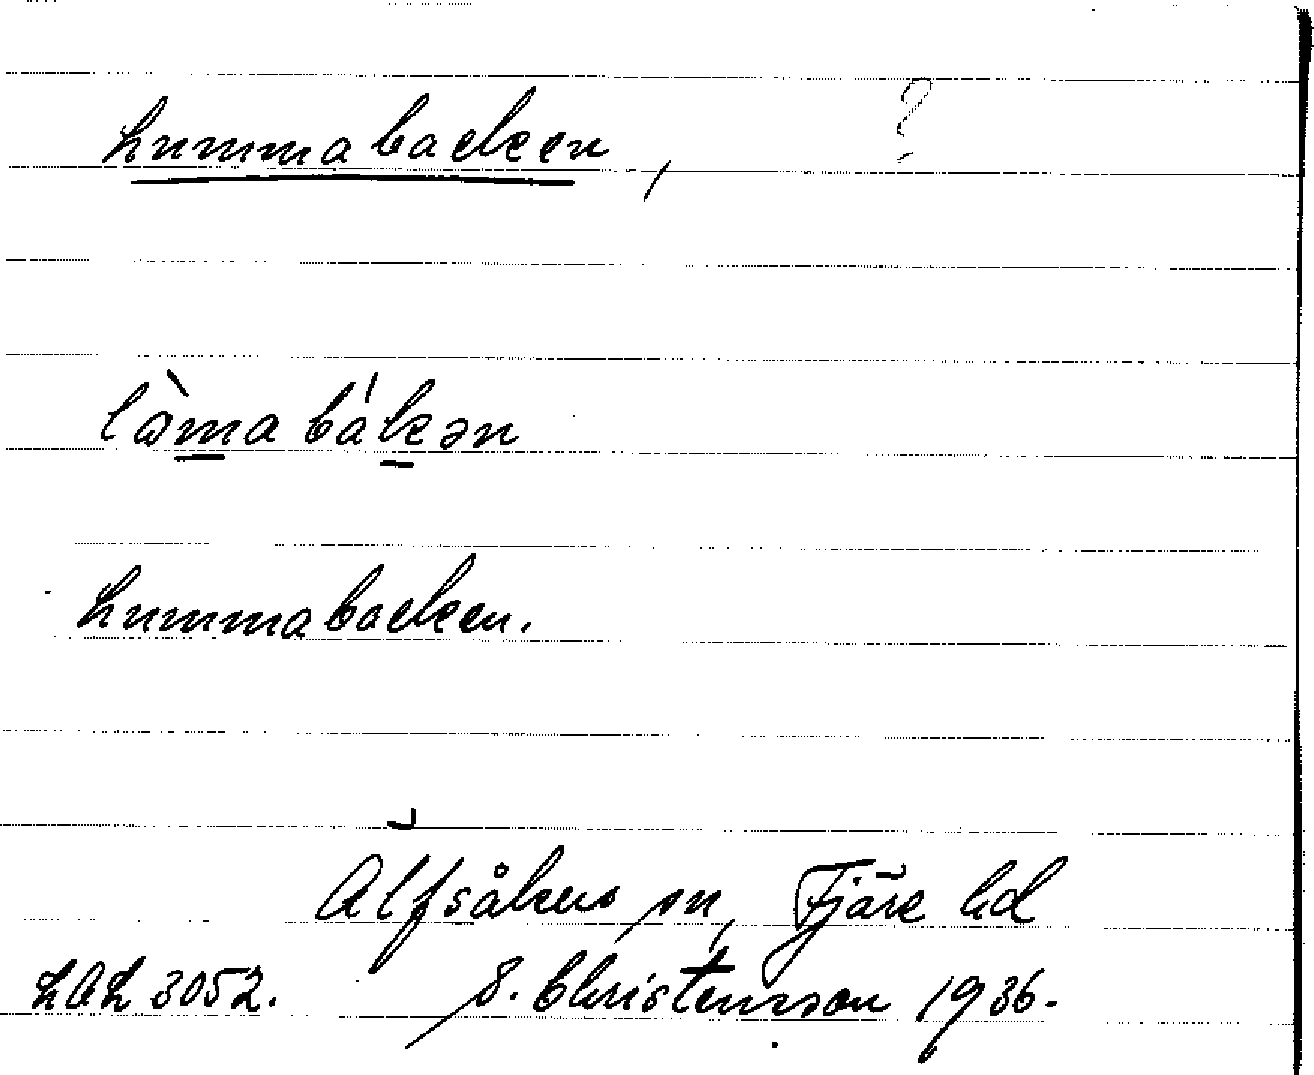 Lummabacken, ?
lὼmabákən
Lummabacken.
Alfsåkers sn, Fjäre hd
LAL 3052. S. Christensson 1936.